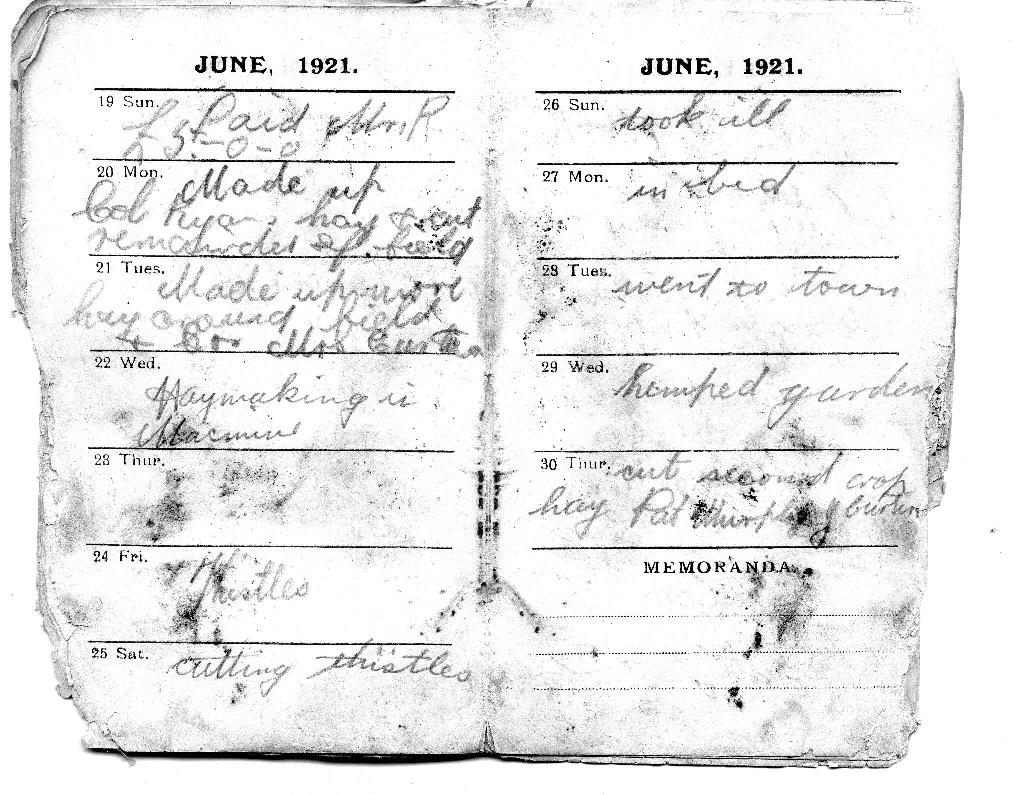 JUNE, 1921.
19 Sun.
Paid Mr. R
£3-0-0
20 Mon.
Made up
Col Ryans hay & cut
remainder of field
21 Tues.
Made up more
hay around field
& for Mrs
22 Wed.
Haymaking in
23 Thur.
24 Fri.
thistles
25 Sat.
cutting thistles
JUNE, 1921.
26 Sun.
took ill
27 Mon.
in bed
28 Tues.
went to town
29 Wed.
garden
30 Thur.
cut second crop
hay Pat Murphy
MEMORANDA